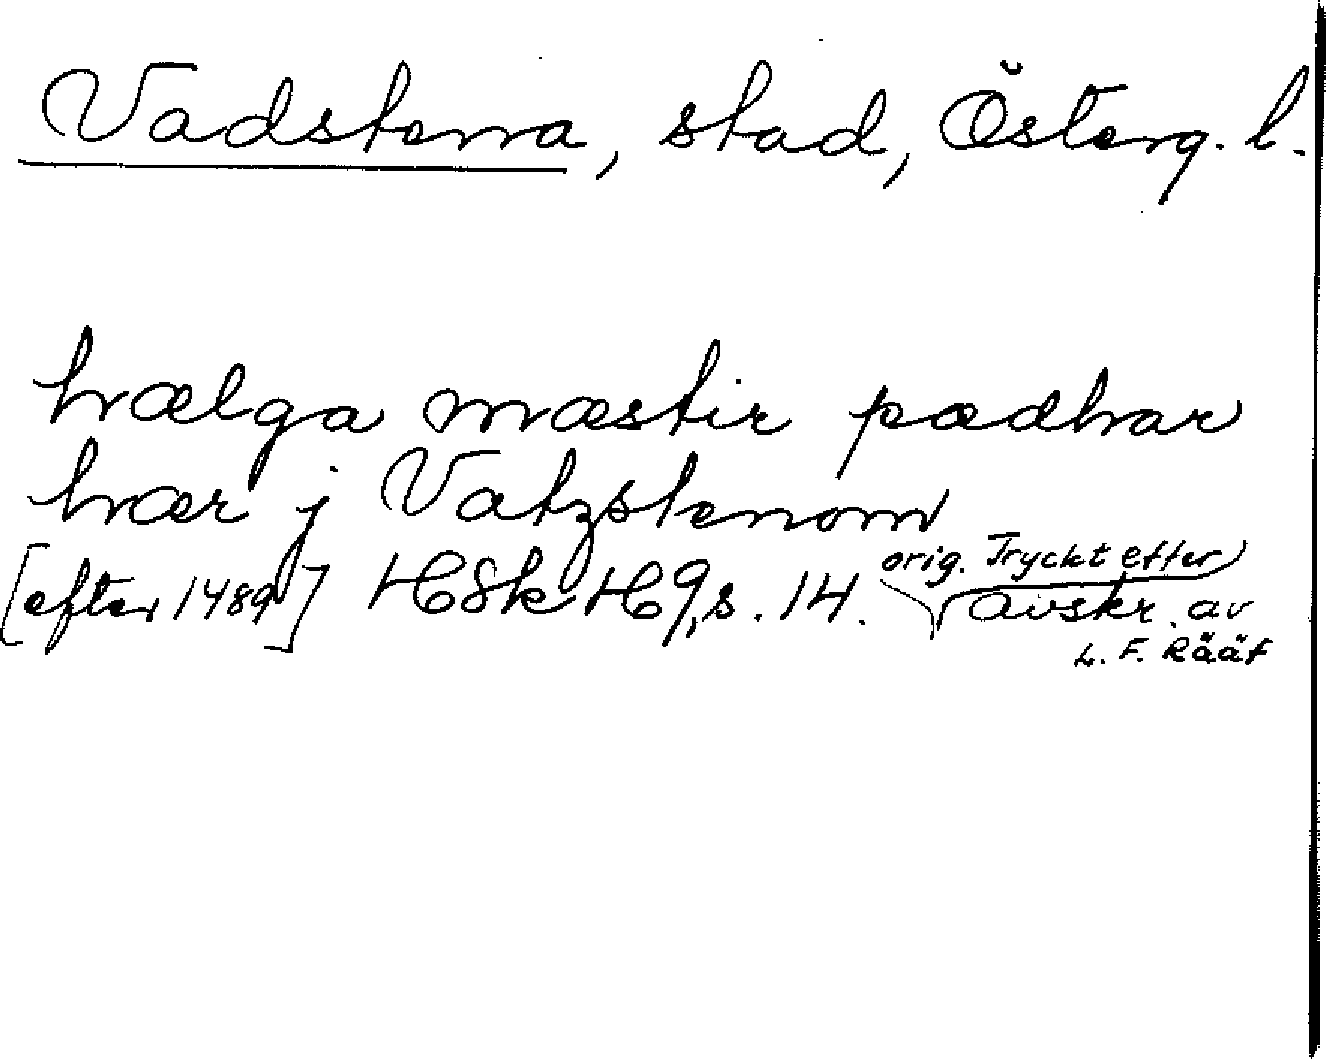 Vadstena, stad, Österg. l.
hælga mæstir pædhar
hær j Vatzstenom
[efter 1489] HSH H9, s. 14. orig. Tryckt efter
avskr. av
L. F. Rääf